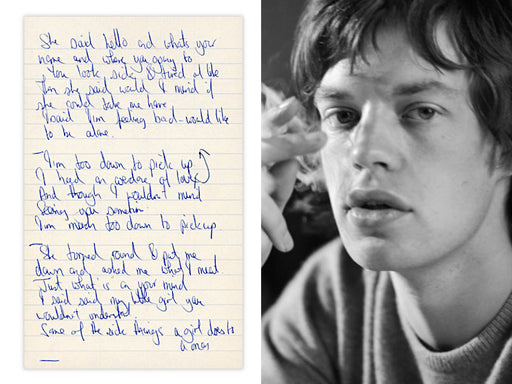 She said hello and whats your
name and where you going to
You look sick & tired of life
Then she said would I mind if
she could take me home
I said I'm feeling bad – would like
to be alone.
I'm too down to pick up
I had an overdose of love
And though I wouldn't mind
seeing you sometime
I'm much too down to pick up
She turned round & put me
down and asked me what I mean
Just what is on your mind
I said said my little girl you
wouldn't understand
Some of the side things a girl does to
a man